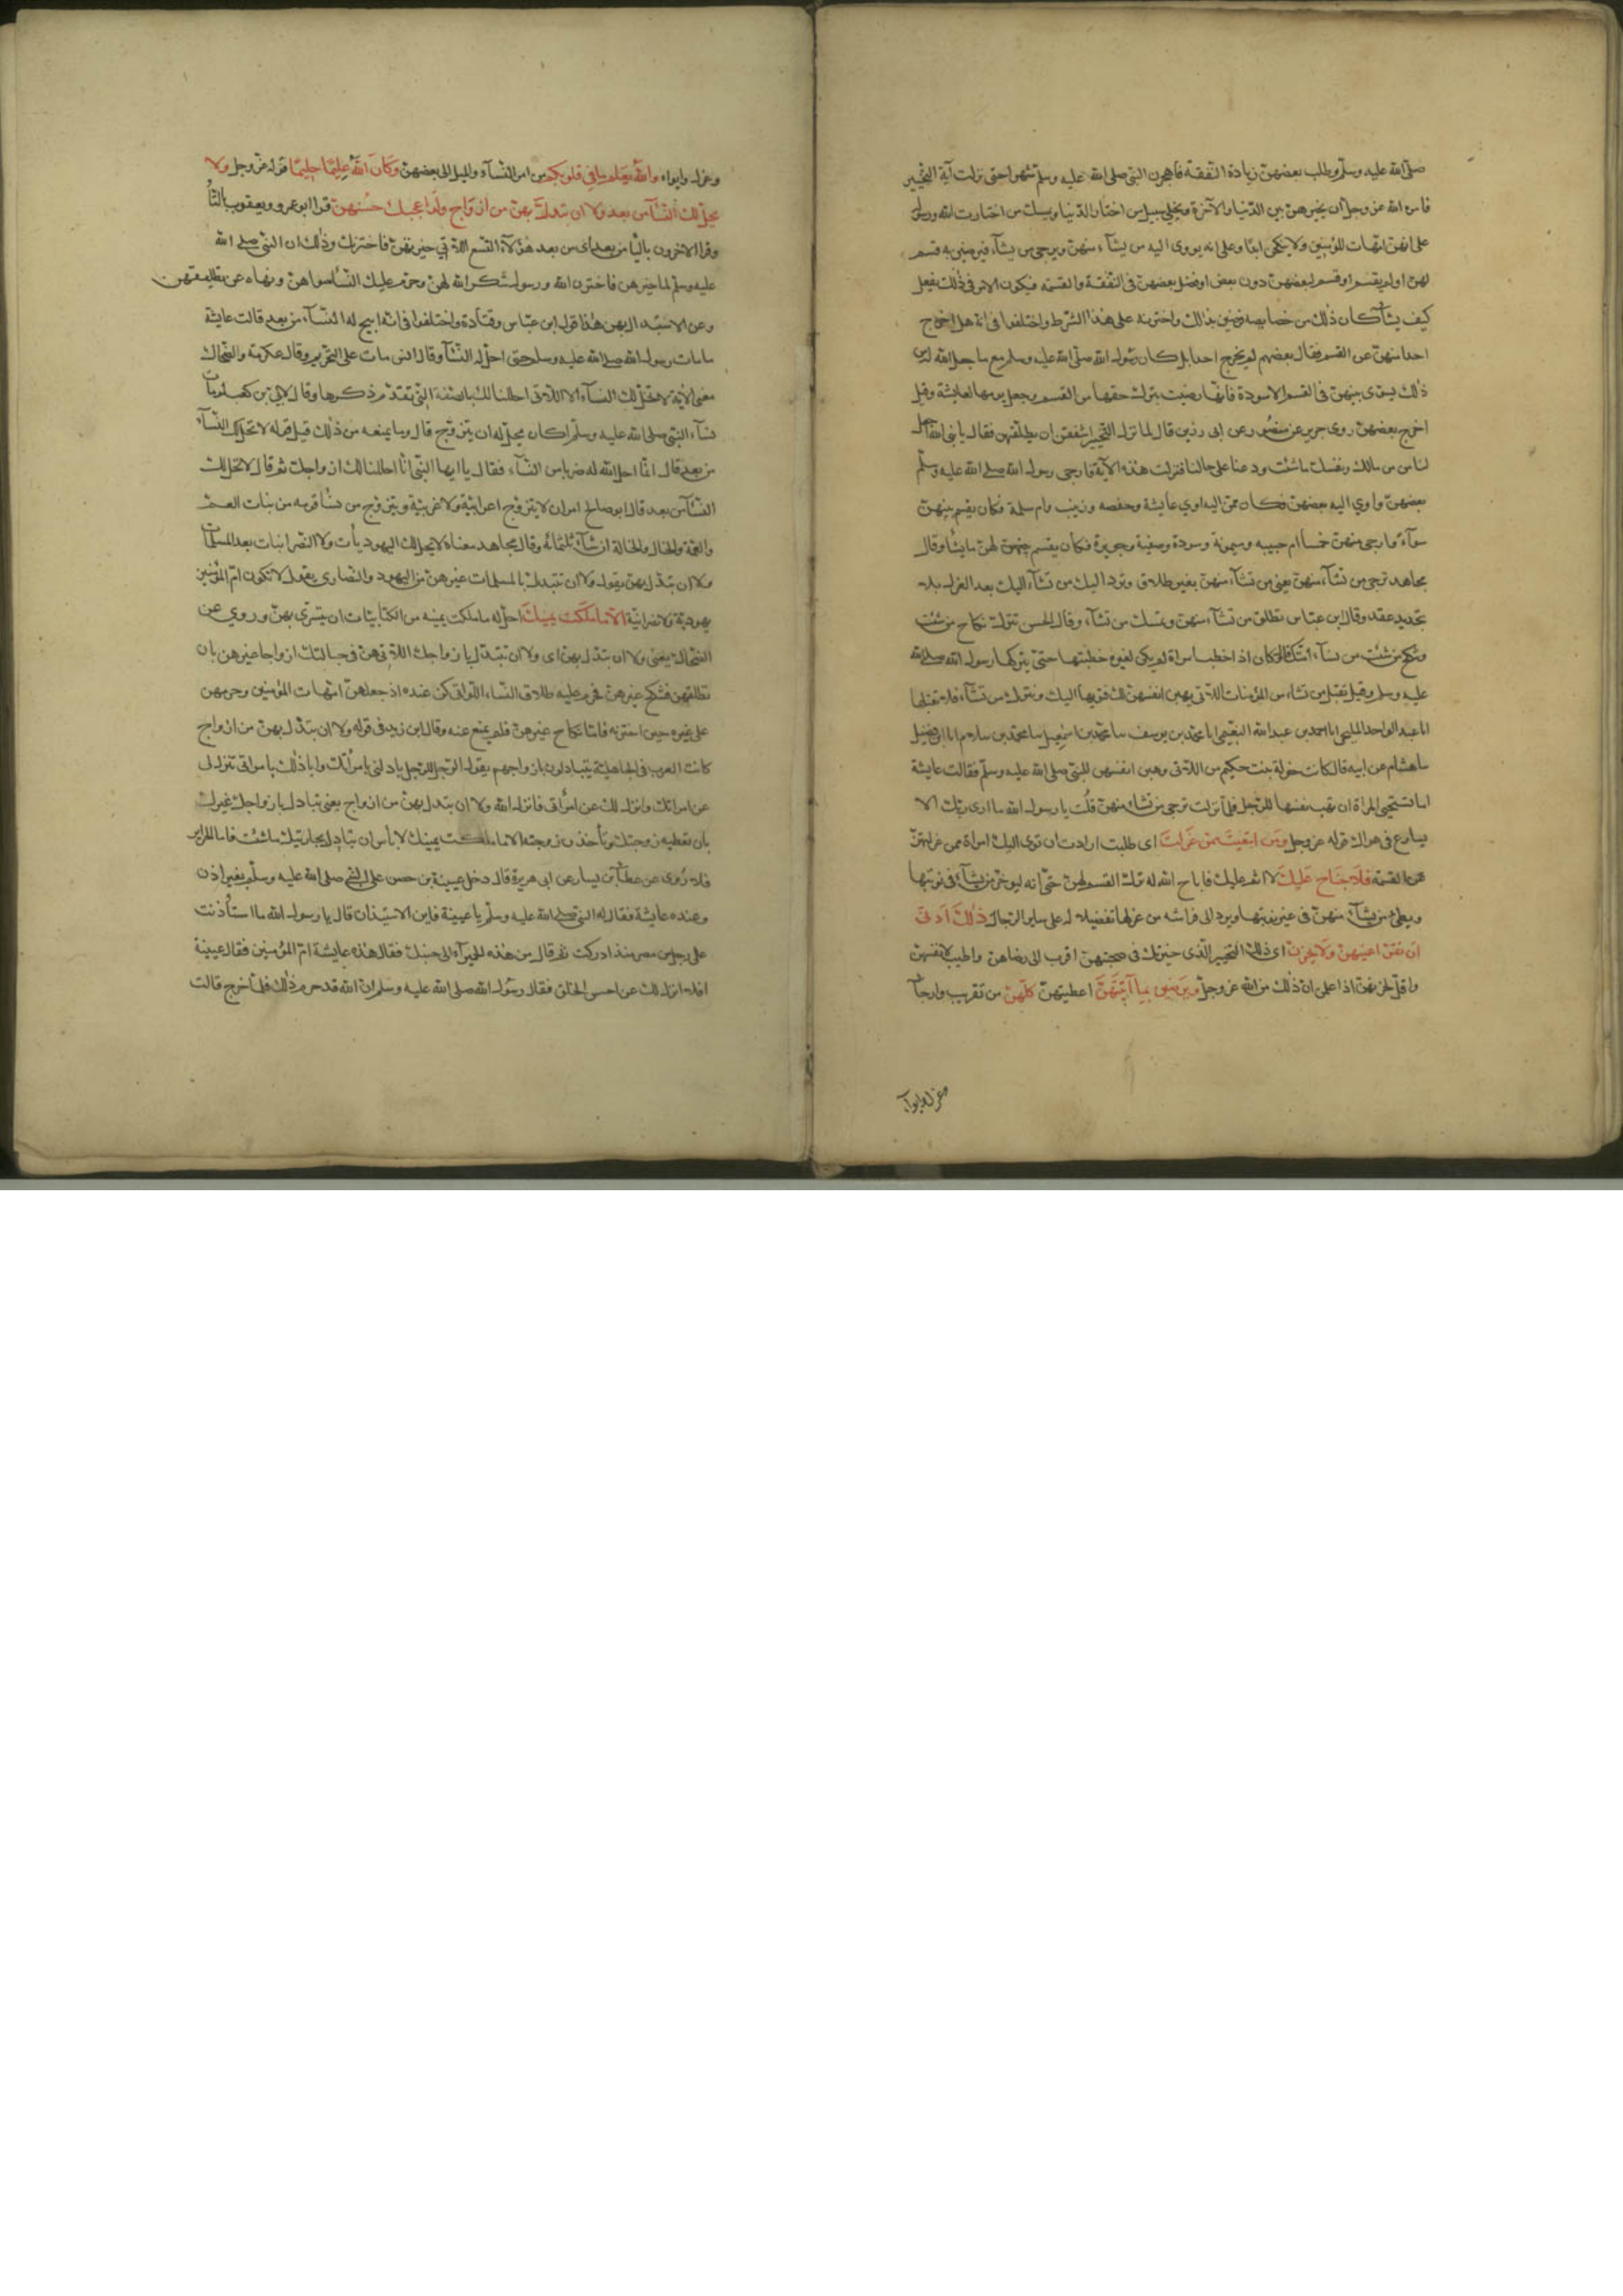 صلى الله عليه وسلم وطلب بعضهن زيادة النفقة فهجرهن النبى صلى الله عليه وسلم شهرا حتى نزلت آية التخيير
فامره الله عز وجل ان يخيرهن بين الدنيا والآخرة ويخلى سبيل من اختار الدنيا ويمسك من اختارت الله ورسوله
على انهن امهات المؤمنين ولا ينكحن ابدا وعلى انه يووى اليه من يشآء منهن ويرجى من يشآء فيرضين به قسم
لهن اولم يقسم او قسم لبعضهن دون بعض او فضل بعضهن فى النفقة والقسمة فيكون الامر فى ذلك يفعل
كيف يشآء كان ذلك من خصايصه فرضين بذلك واخترنه على هذا الشرط واختلفوا فى انه هل اخرج
احدا منهن عن القسم فقال بعضهم لم يخرج احدا بل كان رسول الله صلى الله عليه وسلم مع ما جعل الله له من
ذلك يسوى بينهن فى القسم الا سودة فانها رضيت بترك حقها من القسم وجعل يومها لعايشة وقيل
اخرج بعضهن روى جرير عن منصور عن ابى رزين قال لما نزل التخيير اشفقن ان يطلقهن فقال يا نبى الله اجعل
لنا من مالك ونفسك ما شئت ودعنا على حالنا فنزلت هذه الآية فارجى رسول الله صلى الله عليه وسلم
بعضهن واوي اليه بعضهن فكان ممن اليه اوي عايشة وحفصه وزينب وام سلمة فكان يقسم بينهن
سوآء وارجى منهن خمسا ام حبيبه وميمونة وسودة وصفية وجويرة فكان يقسم بينهن لهن ما يشآء وقال
مجاهد ترجى من تشآء منهن يعنى من تشآء منهن بغير طلاق وترد اليك من تشآء اليك بعد العزل بلا
تجديد عقد وقال ابن عباس تطلق من تشآء منهن وتمسك من تشآء وقال الحسن تترك نكاح من شئت
وتنكح من شئت من نسآء امتك قال وكان اذا خطب امراة لم يكن لغيره خطبتها حتى يتركها رسول الله صلى الله
عليه وسلم وقيل تقبل من تشاء من المؤمنات اللاتى يهبن انفسهن لك فتؤيها اليك وتترك من تشآء فلا تقبلها
انا عبد الواحد المليحى انا احمد بن عبد الله النعيمى انا محمد بن يوسف سا محمد بن اسمعيل سا محمد بن سلام انا ابن فضيل
سا هشام عن ابيه قال كانت خولة بنت حكيم من اللاتى وهبن انفسهن للنبى صلى الله عليه وسلم فقالت عايشة
اما تستحيى المراة ان تهب نفسها للرجل فلما نزلت ترجى من تشآء منهن قلت يا رسول الله ما ارى ربك الا
يسارع فى هواك قوله عز وجل ومن ابتغيت ممن عزلت اى طلبت ارادت ان توى اليك امراة ممن عزلتهن
عن القسمة فلا جناح عليك لا اثم عليك فاباح الله له ترك القسم لهن حتى انه ليوخر من يشآء فى نوبتها
ويطى من يشآء منهن فى غير نوبتها ويرد الى فراشه من عزلها تفضيلا له على ساير الرجال ذلك ادنى
ان تقر اعينهن ولا يحزن اى ذلك التخيير الذى خيرتك فى صحبتهن اقرب الى رضاهن واطيب لانفسهن
واقل لحزنهن اذا علمن ان ذلك من الله عز وجل ويرضين بما آتيتهن اعطيتهن كلهن من تقريب وارجآء
وعزل وايواء
وعزل وايواء والله يعلم ما فى قلوبكم من امر النسآء والميل الى بعضهن وكان الله عليما حليما قوله عز وجل ولا
يحل لك النسآء من بعد ولا ان تبدل بهن من ازواج ولو اعجبك حسنهن قرا ابو عمرو ويعقوب بالتآء
وقرا الاخرون باليا من بعد اى من بعد هؤلآء التسع اللاتي خيرتهن فاخترنك وذلك ان النبى صلى الله
عليه وسلم لما خيرهن فاخترن الله ورسوله شكر الله لهن وحرم عليك النسآء سواهن ونهاه عن تطليقهن
وعن الاستبدال بهن هذا قول ابن عباس وقتادة واختلفوا فى انه ابيح له النسآء من بعد قالت عايشة
ما مات رسول الله صلى الله عليه وسلم حتى احل له النسآء وقال انس مات على التحريم وقال عكرمة والضحاك
معنى الآية لا تحل لك النسآء الا اللاتى احللنا لك بالصفة التى تقدم ذكرها وقال لابى بن كعب لو مات
نسآء النبى صلى الله عليه وسلم اكان يحل له ان يتزوج قال وما يمنعه من ذلك قيل قوله لا تحل لك النسآء
من بعد قال انما احل الله له ضربا من النسآء فقال يا ايها النبى انا احللنا لك ازواجك ثم قال لا تحل لك
النسآء من بعد قال ابو صالح امر ان لا يتزوج اعرابية ولا غربية ويتزوج من نسآء قومه من بنات العم
والعمة والخال والخالة ان شآء ثلثمائة وقال مجاهد معناه لا يحل لك اليهوديات ولا النصرانيات بعد المسلمات
ولا ان تبدل بهن يقول ولا ان تتبدل بالمسلمات غيرهن من اليهود والنصارى يقول لا تكون ام المؤمنين
يهودية ولا نصرانية الا ما ملكت يمينك احل له ما ملكت يمينه من الكتابيات ان يتسرى بهن وروي عن
الضحاك يعنى ولا ان تبدل بهن اى ولا ان تتبدل بازواجك اللاتى هن فى حبالتك ازواجا غيرهن بان
تطلقهن فتنكح غيرهن فحرم عليه طلاق النساء اللواتى كن عنده اذ جعلهن امهات المؤمنين وحرمهن
على غيره حين اخترنه فاما نكاح غيرهن فلم يمنع عنه وقال ابن زيد فى قوله ولا ان تبدل بهن من ازواج
كانت العرب فى الجاهلية يتبادلون بازواجهم يقول الرجل للرجل بادلنى بامرأتك وابادلك بامراتى تنزل لى
عن امراتك وانزل لك عن امرأتى فانزل الله ولا ان تبدل بهن من ازواج يعنى تبادل بازواجك غيرك
بان تعطيه زوجتك وتأخذ زوجته الا ما ملكت يمينك لا بأس ان تبادل بجاريتك ما شئت فاما الحراير
فلا روى عن عطآء بن يسار عن ابى هريرة قال دخل عيينة بن حصن على النبى صلى الله عليه وسلم بغير اذن
وعنده عايشة فقال له النبى صلى الله عليه وسلم يا عيينة فاين الاستيذان قال يا رسول الله ما استأذنت
على رجل من مضر منذ ادركت ثم قال من هذه الحميرآء الى جنبك فقال هذه عايشة ام المؤمنين فقال عيينة
افلا انزل لك عن احسن الخلق فقال رسول الله صلى الله عليه وسلم ان الله قد حرم ذلك فلما خرج قالت